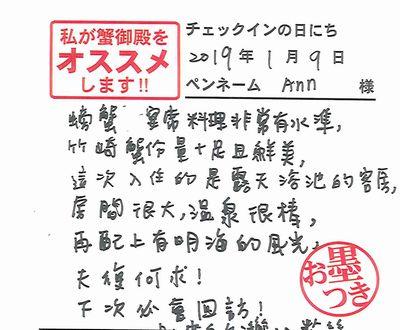 私が蟹御殿を
オススメ
します!!
チェックインの日にち
2019年1月9日
ペンネーム Ann 様
螃蟹 宴席料理非常有水準,
竹崎蟹份量十足且鮮美,
這次入住的是露天浴池的客房,
房間很大,溫泉很棒,
再配上有明海的風光,
夫復何求!
下次必會回訪!
お墨つき